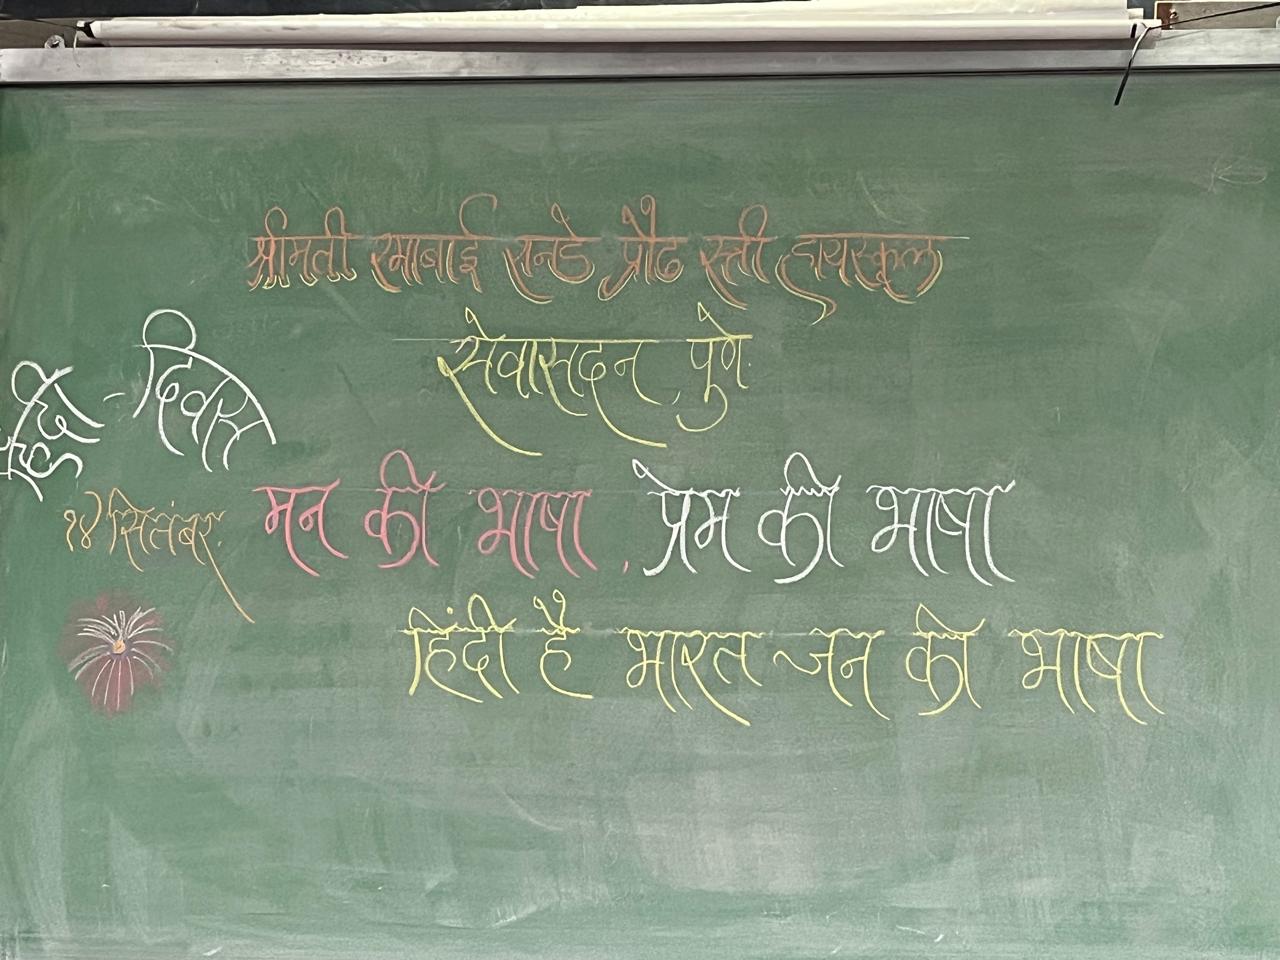 श्रीमती रमाबाई सनडे प्रौढ स्त्री हायस्कूल
सेवासदन, पुणे.
हिंदी - दिवस
१४ सितंबर.
मन की भाषा, प्रेम की भाषा
हिंदी है भारत जन की भाषा